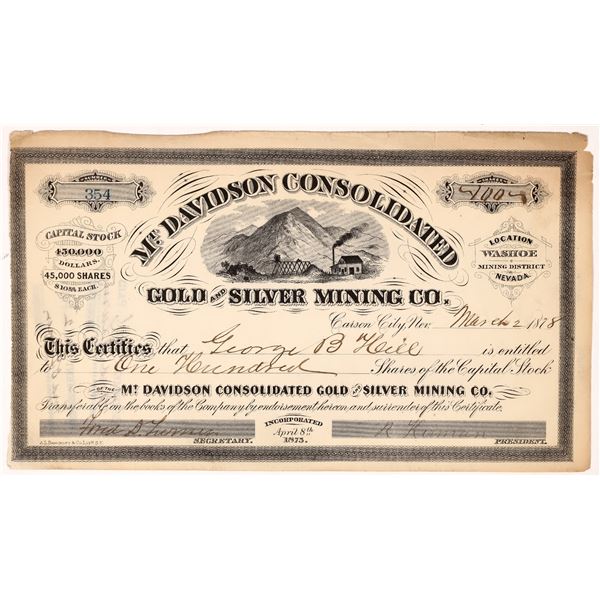 NUMBER
354
SHARES
100
Mt. DAVIDSON CONSOLIDATED
GOLD AND SILVER MINING CO.
CAPITAL STOCK
450,000
DOLLARS.
45,000 SHARES
$10.00 EACH.
LOCATION
WASHOE
MINING DISTRICT
NEVADA.
Carson City, Nev. March 2 1878
This Certifies that George B Hill is entitled
to One Hundred Shares of the Capital Stock
OF THE MT. DAVIDSON CONSOLIDATED GOLD AND SILVER MINING CO.
Transferable on the books of the Company by endorsement hereon and surrender of this Certificate.
INCORPORATED
April 8th
1875.
SECRETARY.
PRESIDENT.